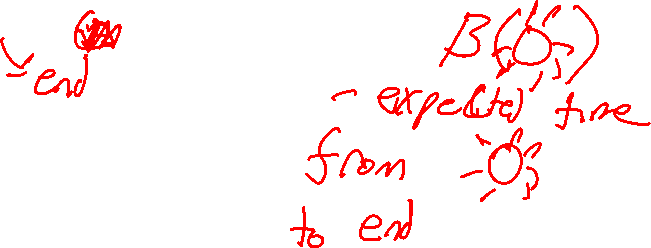 - end
B( )
- expected time
from
to end